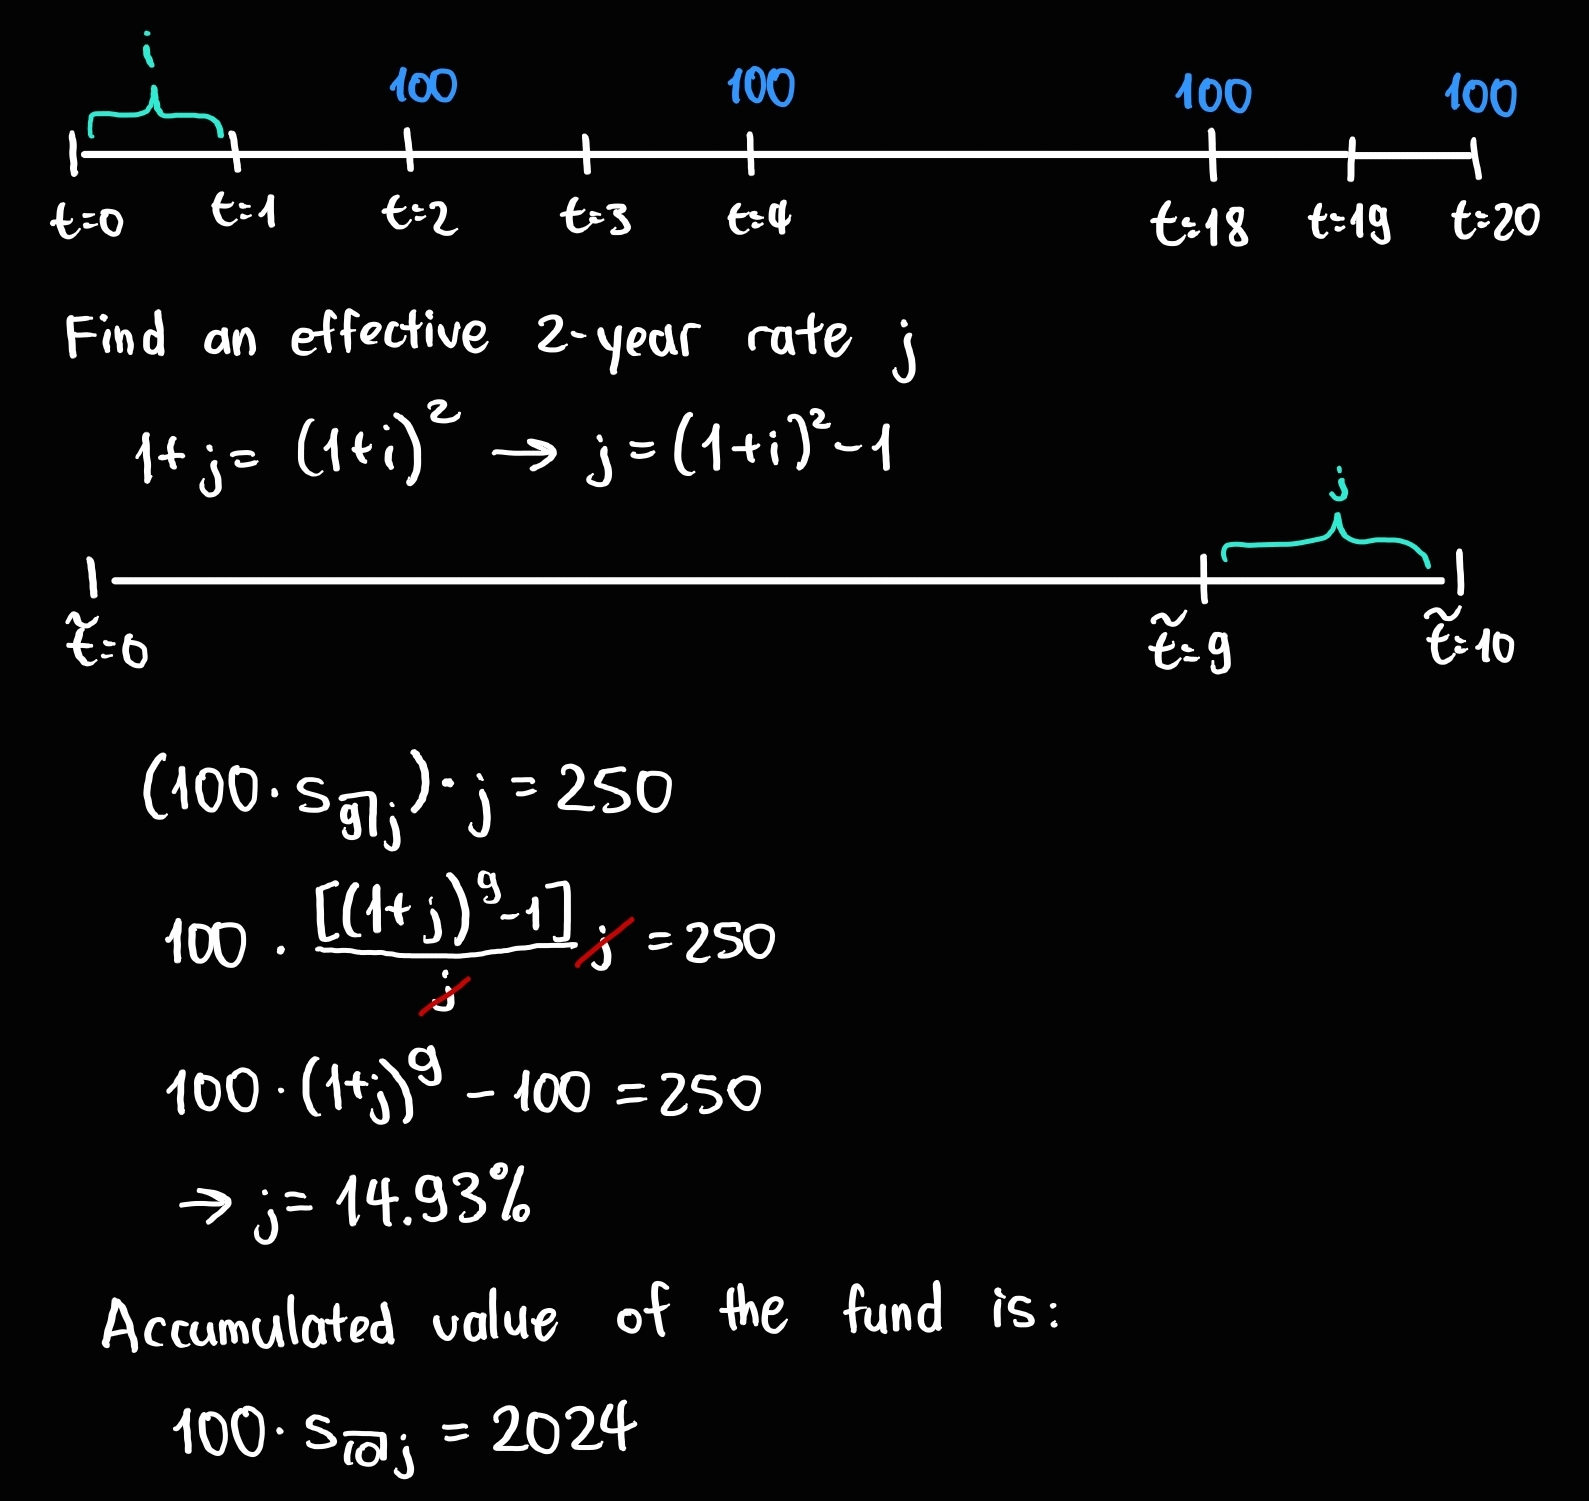 i
100 100 100 100
t=0 t=1 t=2 t=3 t=4 t=18 t=19 t=20
Find an effective 2-year rate j
1+j = (1+i)² → j = (1+i)² - 1
j
t̃=0 t̃=9 t̃=10
(100 · s_{9̅|j}) · j = 250
100 · [(1+j)⁹ - 1]/j j = 250
100 · (1+j)⁹ - 100 = 250
→ j = 14.93%
Accumulated value of the fund is:
100 · s_{1̅0̅|j} = 2024